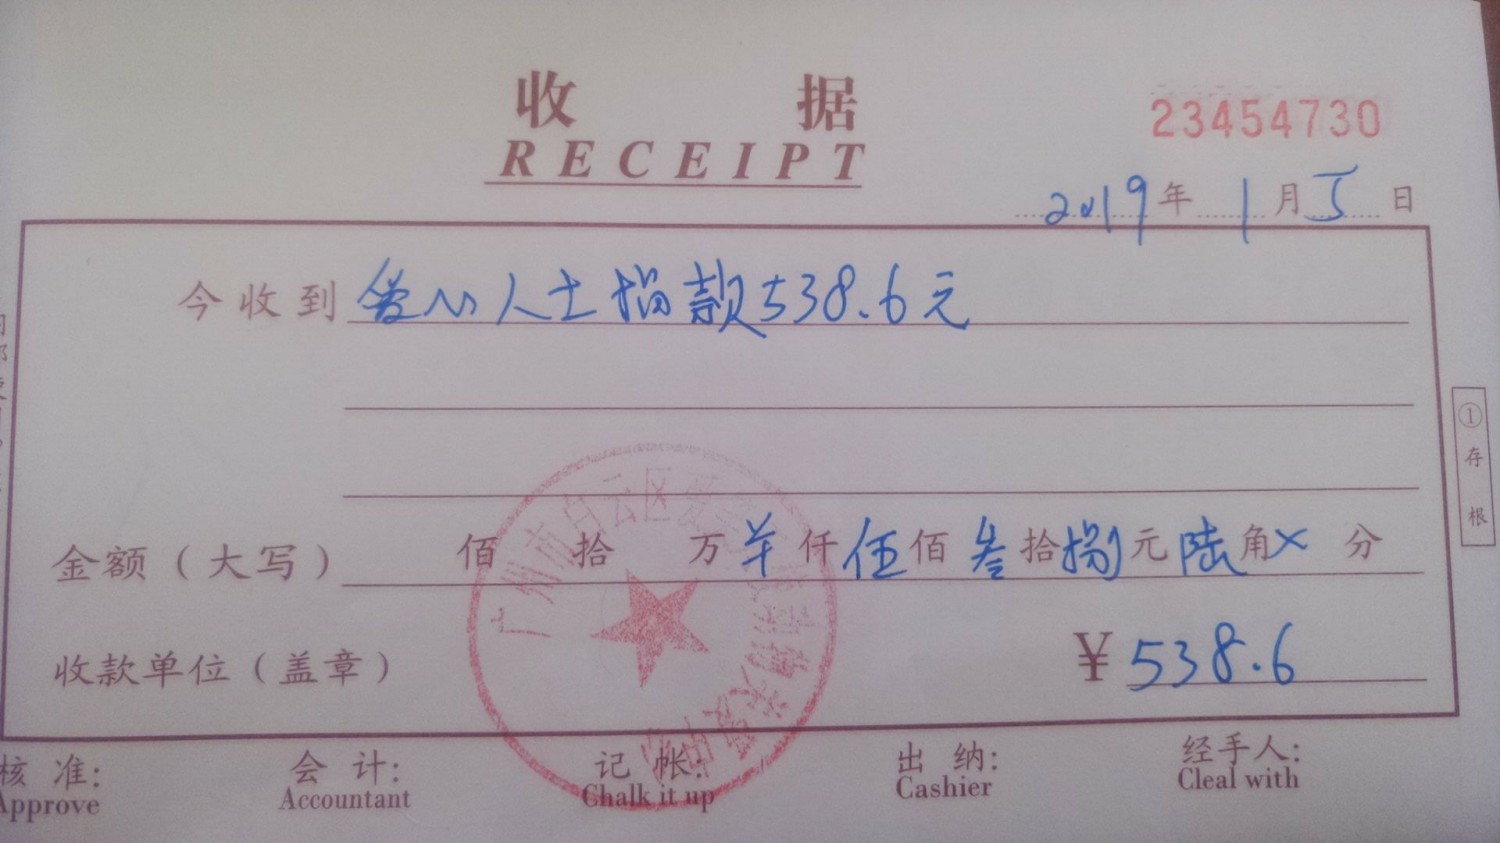 收据
RECEIPT
23454730
2019年1月5日
今收到爱心人士捐款538.6元
金额（大写） 佰 拾 万 羊 仟 伍 佰 叁 拾 捌 元 陆 角 × 分
收款单位（盖章） ¥538.6
广州市白云区
① 存根
核准: 会计: 记帐: 出纳: 经手人:
Approve Accountant Chalk it up Cashier Cleal with